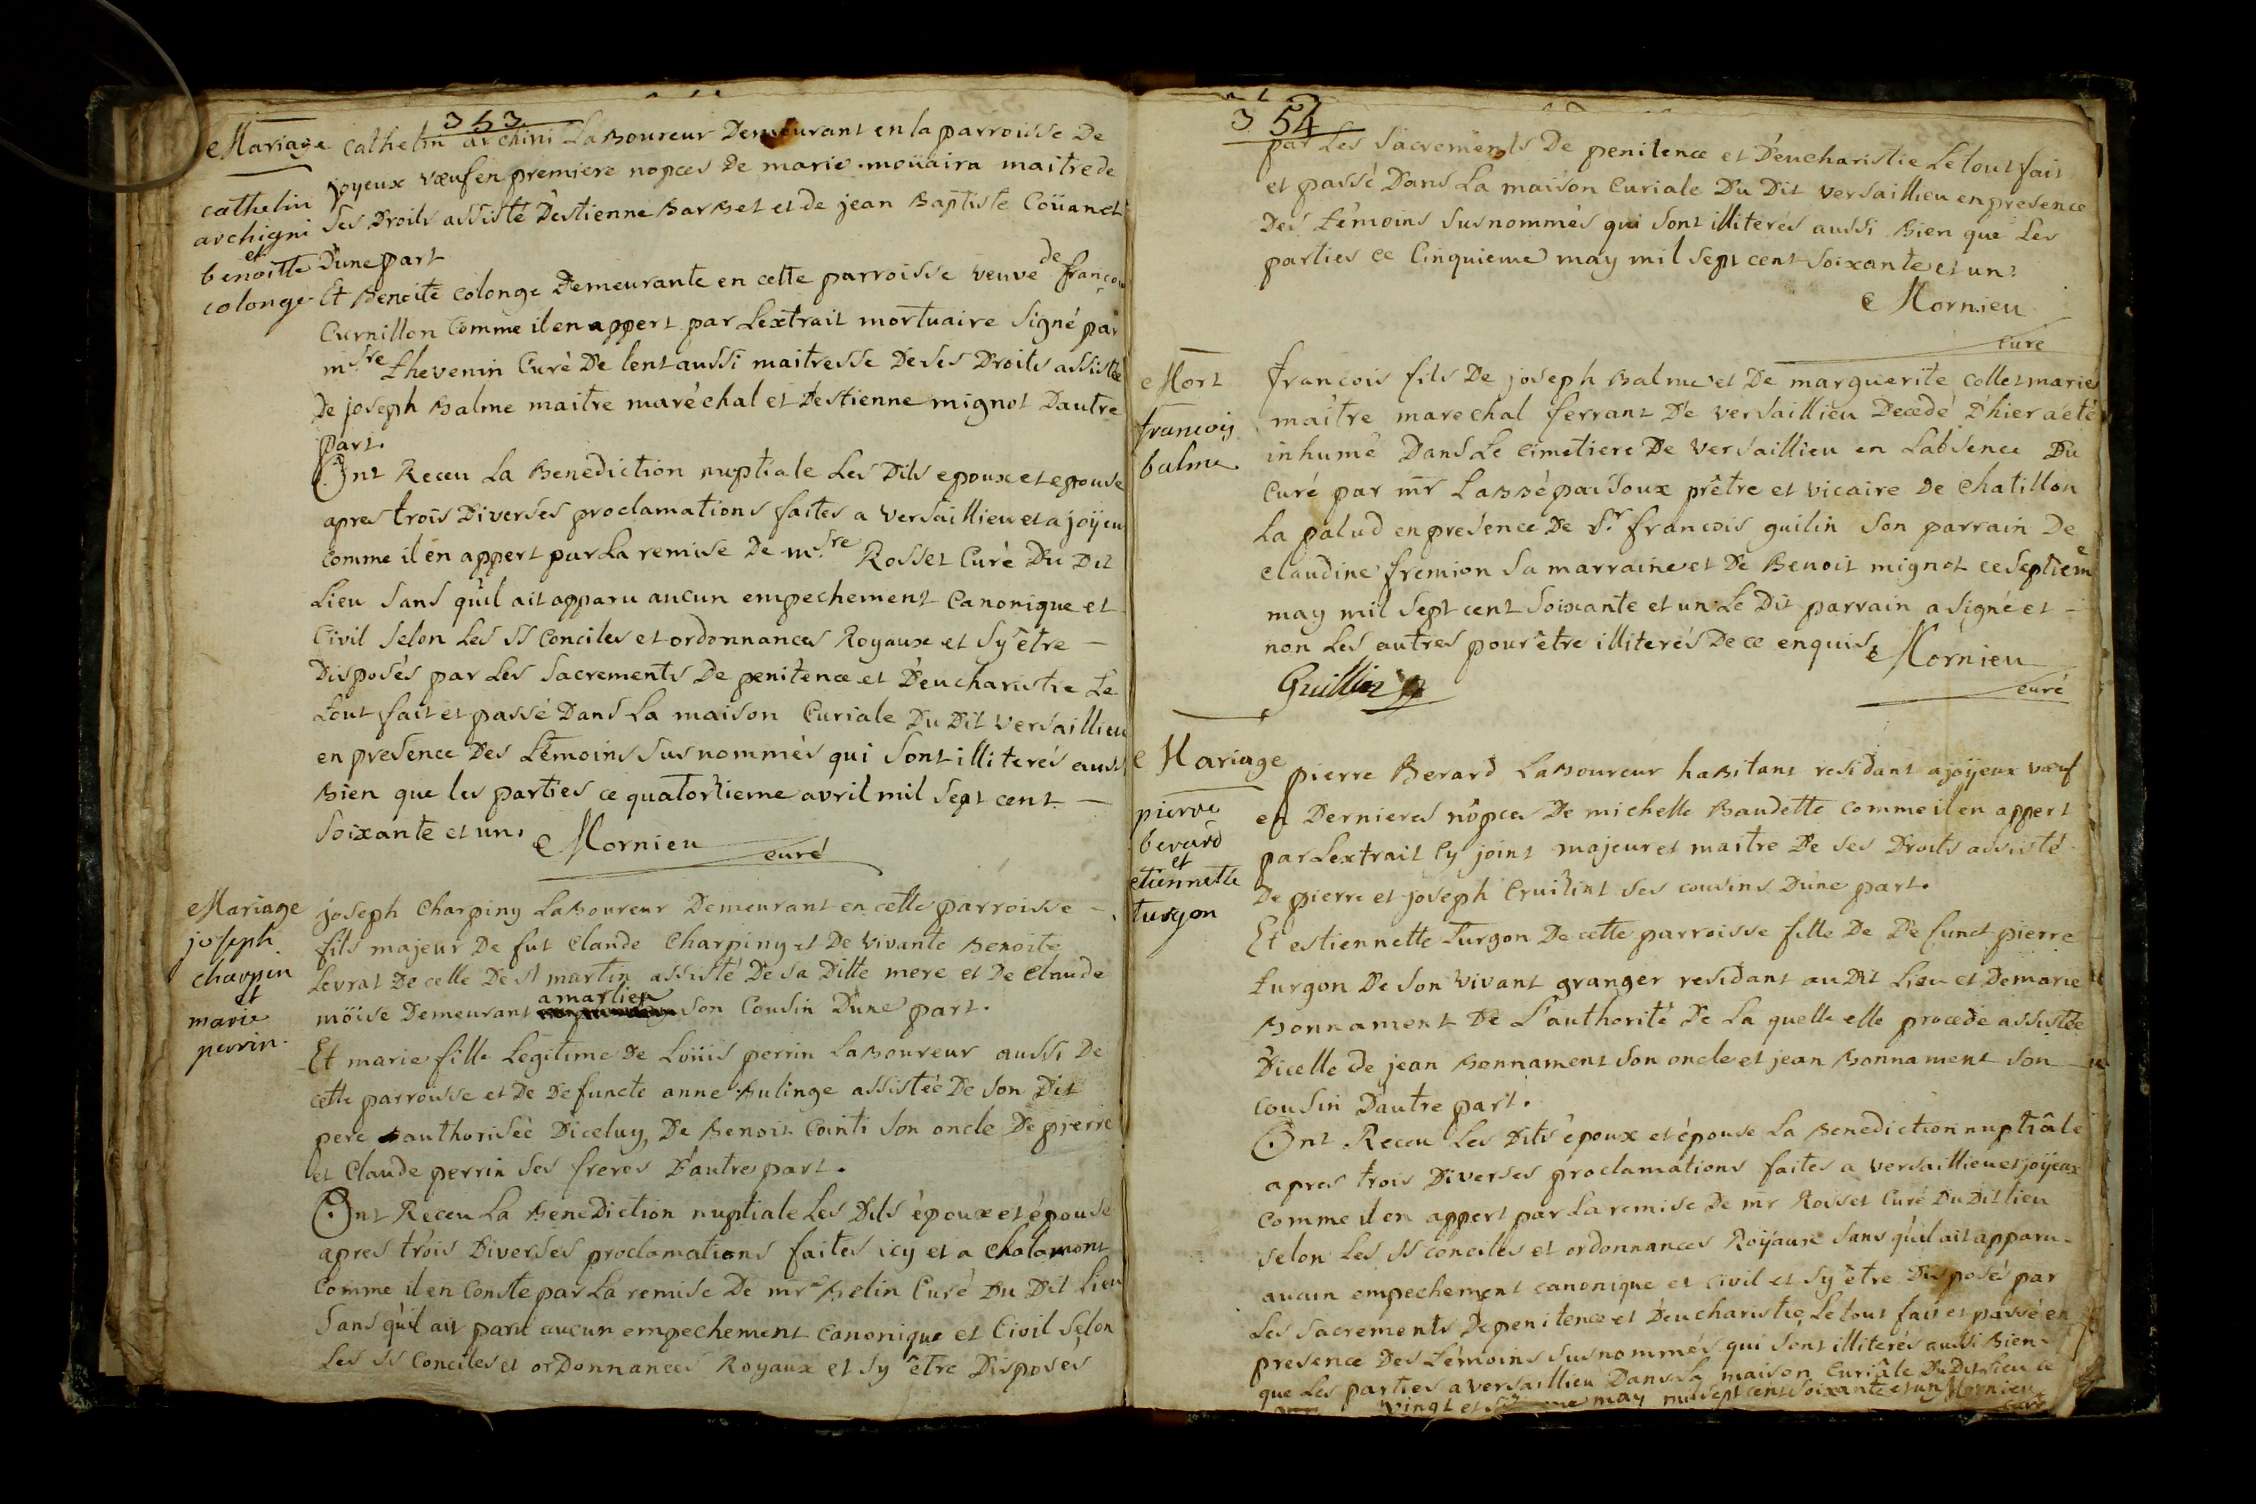 353
Mariage
cathelin
archigni
et
benoitte
colonge
Cathelin archini Laboureur Demeurant en la parroisse De
joyeux vœuf en premiere nopces De marie moüaira maitre de
ses Droits assisté D'estienne Barbet et de jean Baptiste Coüanet
D'une part
Et Benoite colonge Demeurante en cette parroisse veuve de françois
Curnillon Comme il en appert par L'extrait mortuaire Signé par
msre Thevenin Curé De lent aussi maitresse De ses Droits assistée
De joseph Balme maitre maréchal et D'estienne mignot D'autre
part.
Ont Receu La Benediction nuptiale Les Dits epoux et epouse
apres trois Diverses proclamations faites a Versaillieu et a joÿeux
Comme il en appert par La remise De msre Rosset Curé Du Dit
Lieu Sans qu'il ait apparu aucun empechement Canonique et
Civil Selon Les SS Conciles et ordonnances Royaux et s'y être
Disposés par Les Sacrements De penitence et D'eucharistie Le
tout fait et passé Dans La maison Curiale Du Dit Versaillieu
en presence Des Témoins Sus nommés qui sont illiterés aussi
Bien que les parties ce quatorzieme avril mil sept cent
Soixante et un. Mornieu
curé
Mariage
joseph
charpin
et
marie
perrin.
joseph Charpiny Laboureur Demeurant en cette parroisse
fils majeur De fut Claude Charpiny et De Vivante Benoite
Levrat De celle De St martin assisté De sa Ditte mere et De Claude
möise Demeurant a marlieu son Cousin D'une part.
Et marie fille Legitime De Loüis perrin Laboureur aussi De
cette parroisse et De Defuncte anne Bulinge assistée De son Dit
pere authorisée D'iceluy, De Benoit Cointi son oncle De pierre
et Claude perrin ses freres D'autre part.
Ont Receu La BeneDiction nuptiale Les Dits époux et épouse
apres trois Diverses proclamations faites icy et a Chalamont
Comme il en Conste par La remise De mr Belin Curé Du Dit Lieu
Sans qu'il ait paru aucun empechement Canonique et Civil Selon
Les SS Conciles et orDonnances Royaux et s'y être Disposés
354
par Les Sacrements De penitence et D'eucharistie Le tout fait
et passé Dans La maison Curiale Du Dit Versaillieu en presence
Des Témoins Susnommés qui sont illiterés aussi Bien que Les
parties ce Cinquieme may mil sept cent Soixante et un.
Mornieu
curé
Mort
francois
balme
francois fils De joseph Balme et De marguerite Collet mariés
maître marechal ferrant De Versaillieu Decedé D'hier a été
inhumé Dans Le Cimetiere De Versaillieu en L'absence Du
Curé par mr L'abbé paisoux prêtre et vicaire De Chatillon
La palud en presence De Sr francois guilin Son parrain De
Claudine fremion Sa marraine et De Benoit mignot ce septieme
may mil sept cent Soixante et un Le Dit parrain a signé et
non Les autres pour être illiterés De ce enquis, Mornieu
curé
Guillin
Mariage
pierre
berard
et
etiennette
turgon
pierre Berard Laboureur habitant residant a joÿeux vœuf
en Dernieres nôpces De michelle Baudette comme il en appert
par L'extrait Cy joint majeur et maitre De ses Droits assisté
De pierre et joseph Cruizint ses cousins D'une part.
Et estiennette Turgon De cette parroisse fille De Defunct pierre
turgon De son Vivant granger residant au Dit Lieu et De marie
Bonnament De L'authorité De La quelle elle procede assistée
D'icelle de jean Bonnament son oncle et jean Bonnament son
cousin D'autre part.
Ont Receu Les Dits époux et épouse La Benediction nuptiâle
apres trois Diverses proclamations faites a Versaillieu et joÿeux
Comme il en appert par La remise De mr Rosset Curé Du Dit lieu
selon Les SS Conciles et ordonnances Roÿaux Sans qu'il ait apparu
aucun empechement canonique et Civil et s'y être Disposés par
Les Sacrements De penitence et D'eucharistie Le tout fait et passé en
presence Des Témoins Susnommés qui sont illiterés aussi Bien
que Les parties a Versaillieu Dans La maison Curiâle Du Dit Lieu ce
vingt et may mil sept cent Soixante et un Mornieu
curé